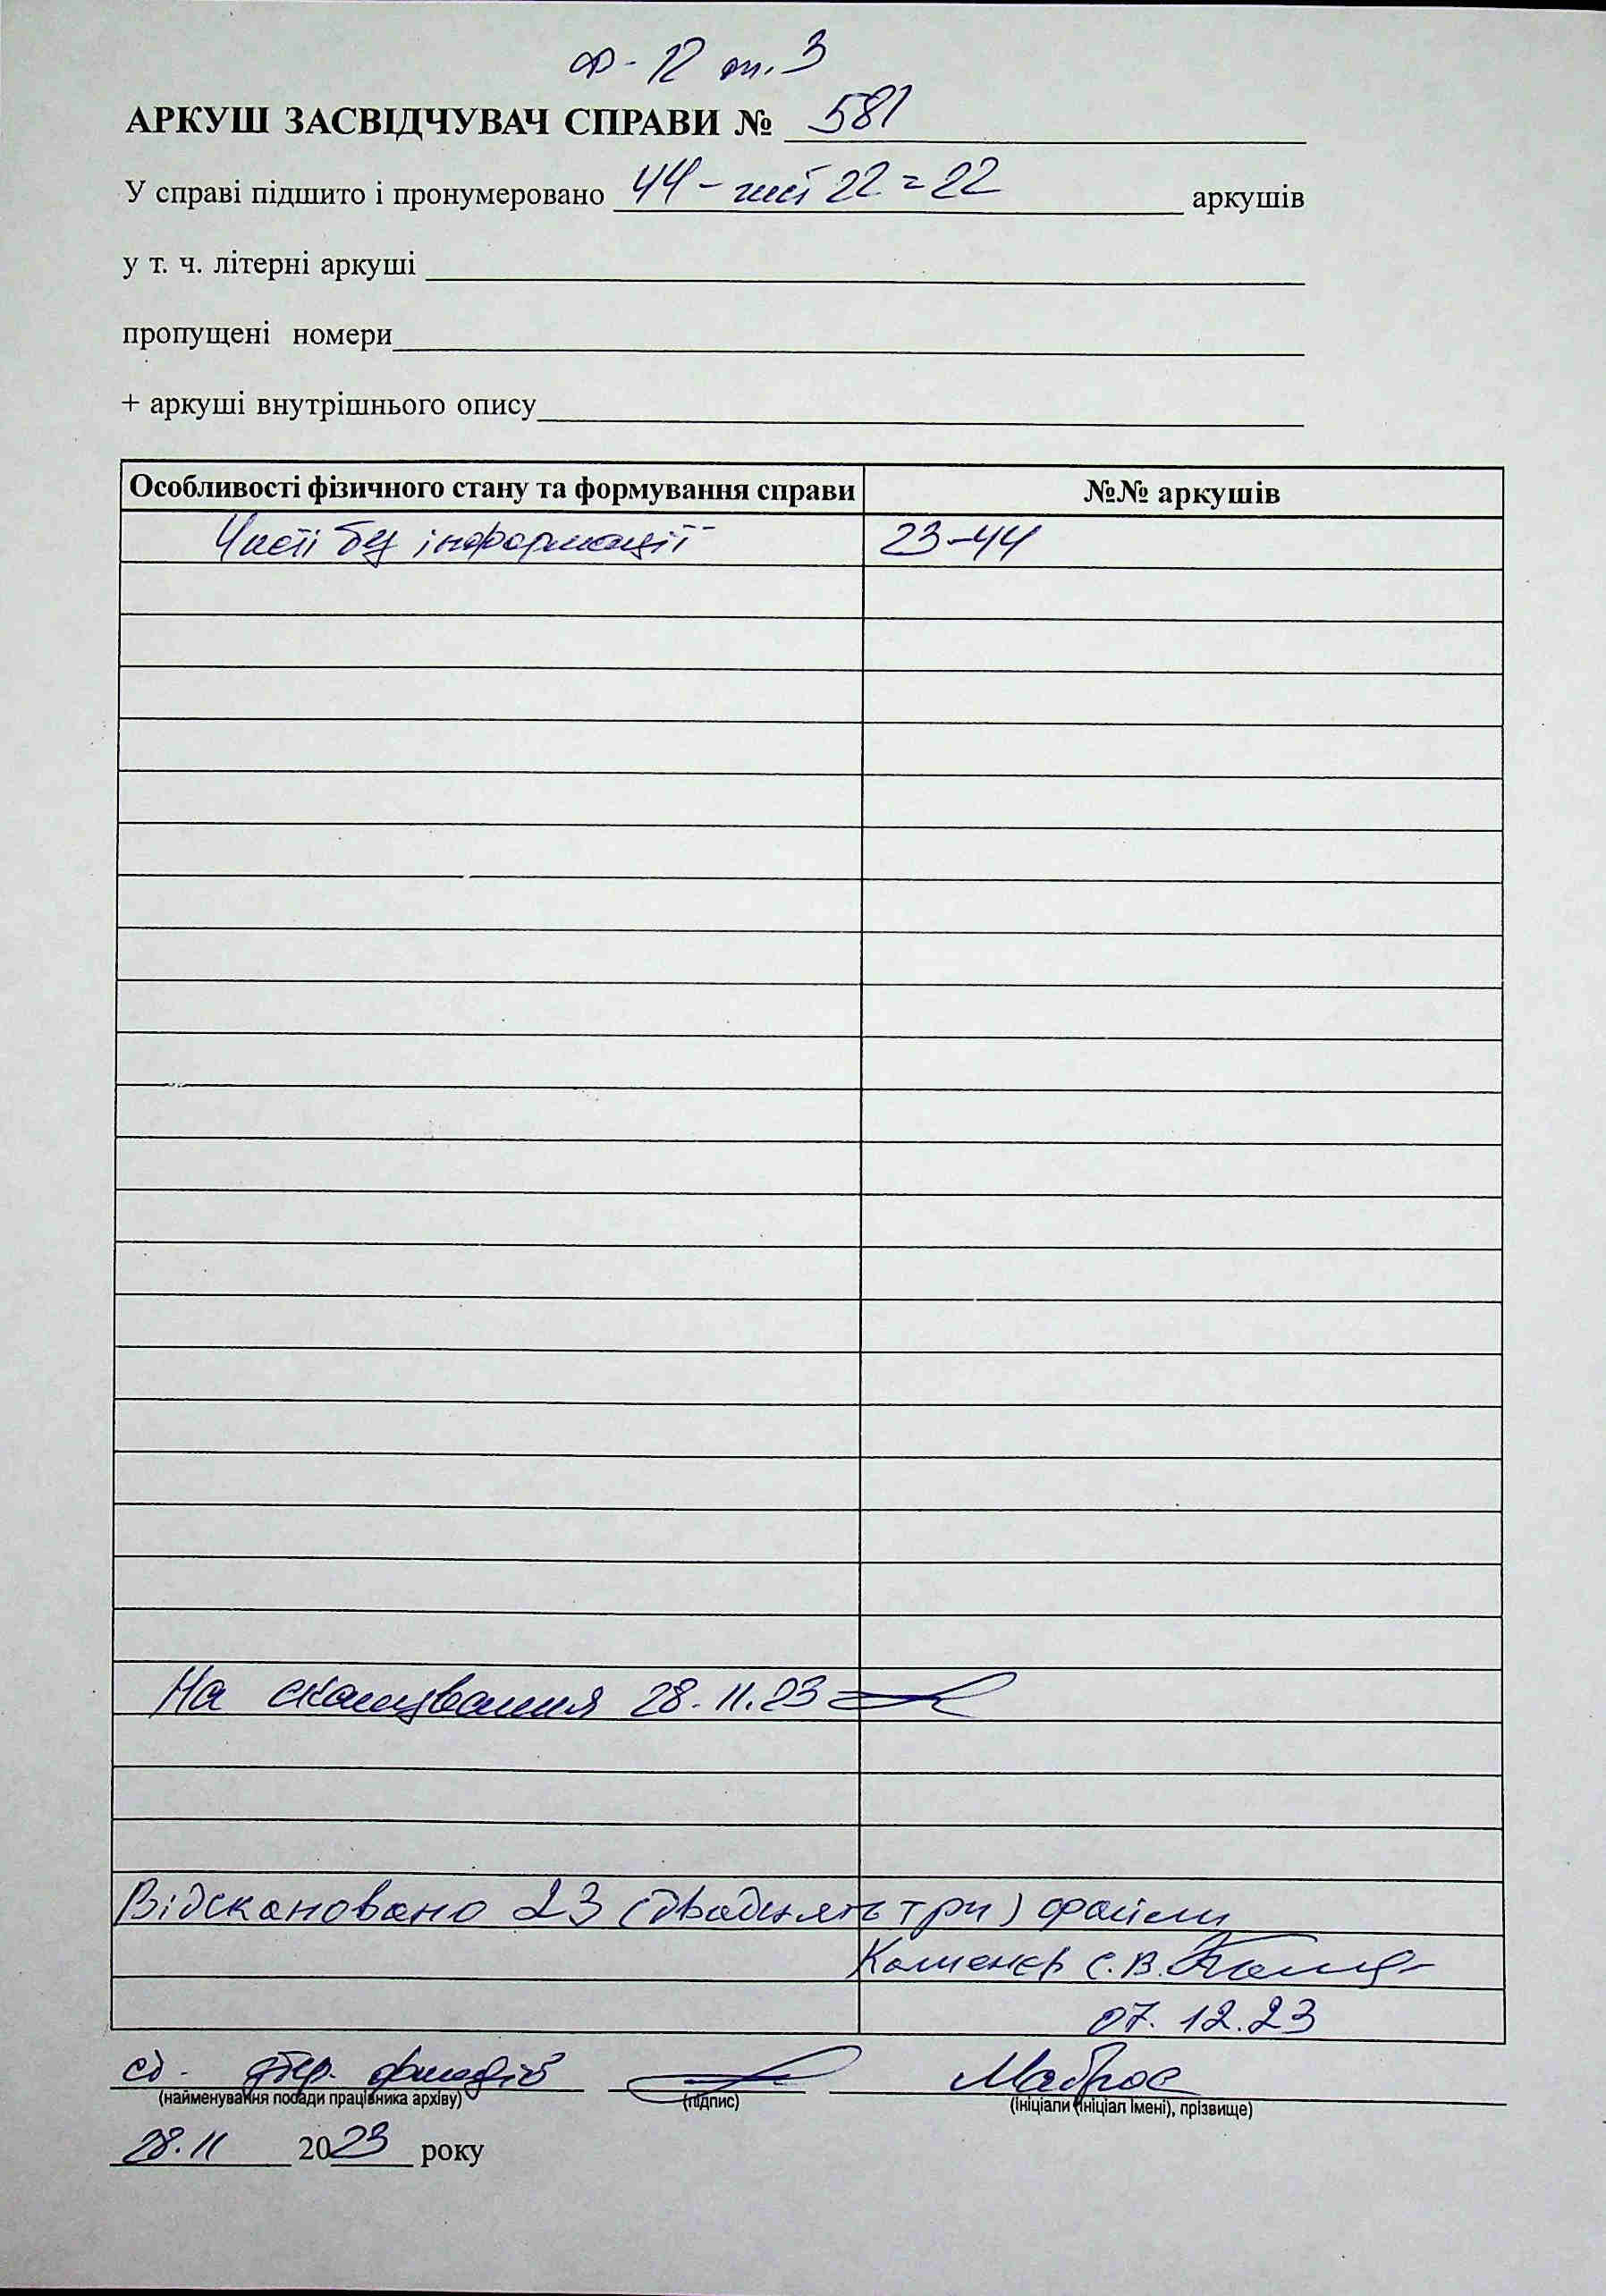 Ф-12 оп. 3
АРКУШ ЗАСВІДЧУВАЧ СПРАВИ № 581
У справі підшито і пронумеровано 44 - чисті 22 = 22 аркушів
у т. ч. літерні аркуші
пропущені номери
+ аркуші внутрішнього опису
Особливості фізичного стану та формування справи №№ аркушів
Чисті без інформації 23-44
На сканування 28.11.23
Відскановано 23 (двадцять три) файли
С.В.
07.12.23
фондів Маброс
(найменування посади працівника архіву) (підпис) (ініціали (ініціал імені), прізвище)
28.11 2023 року